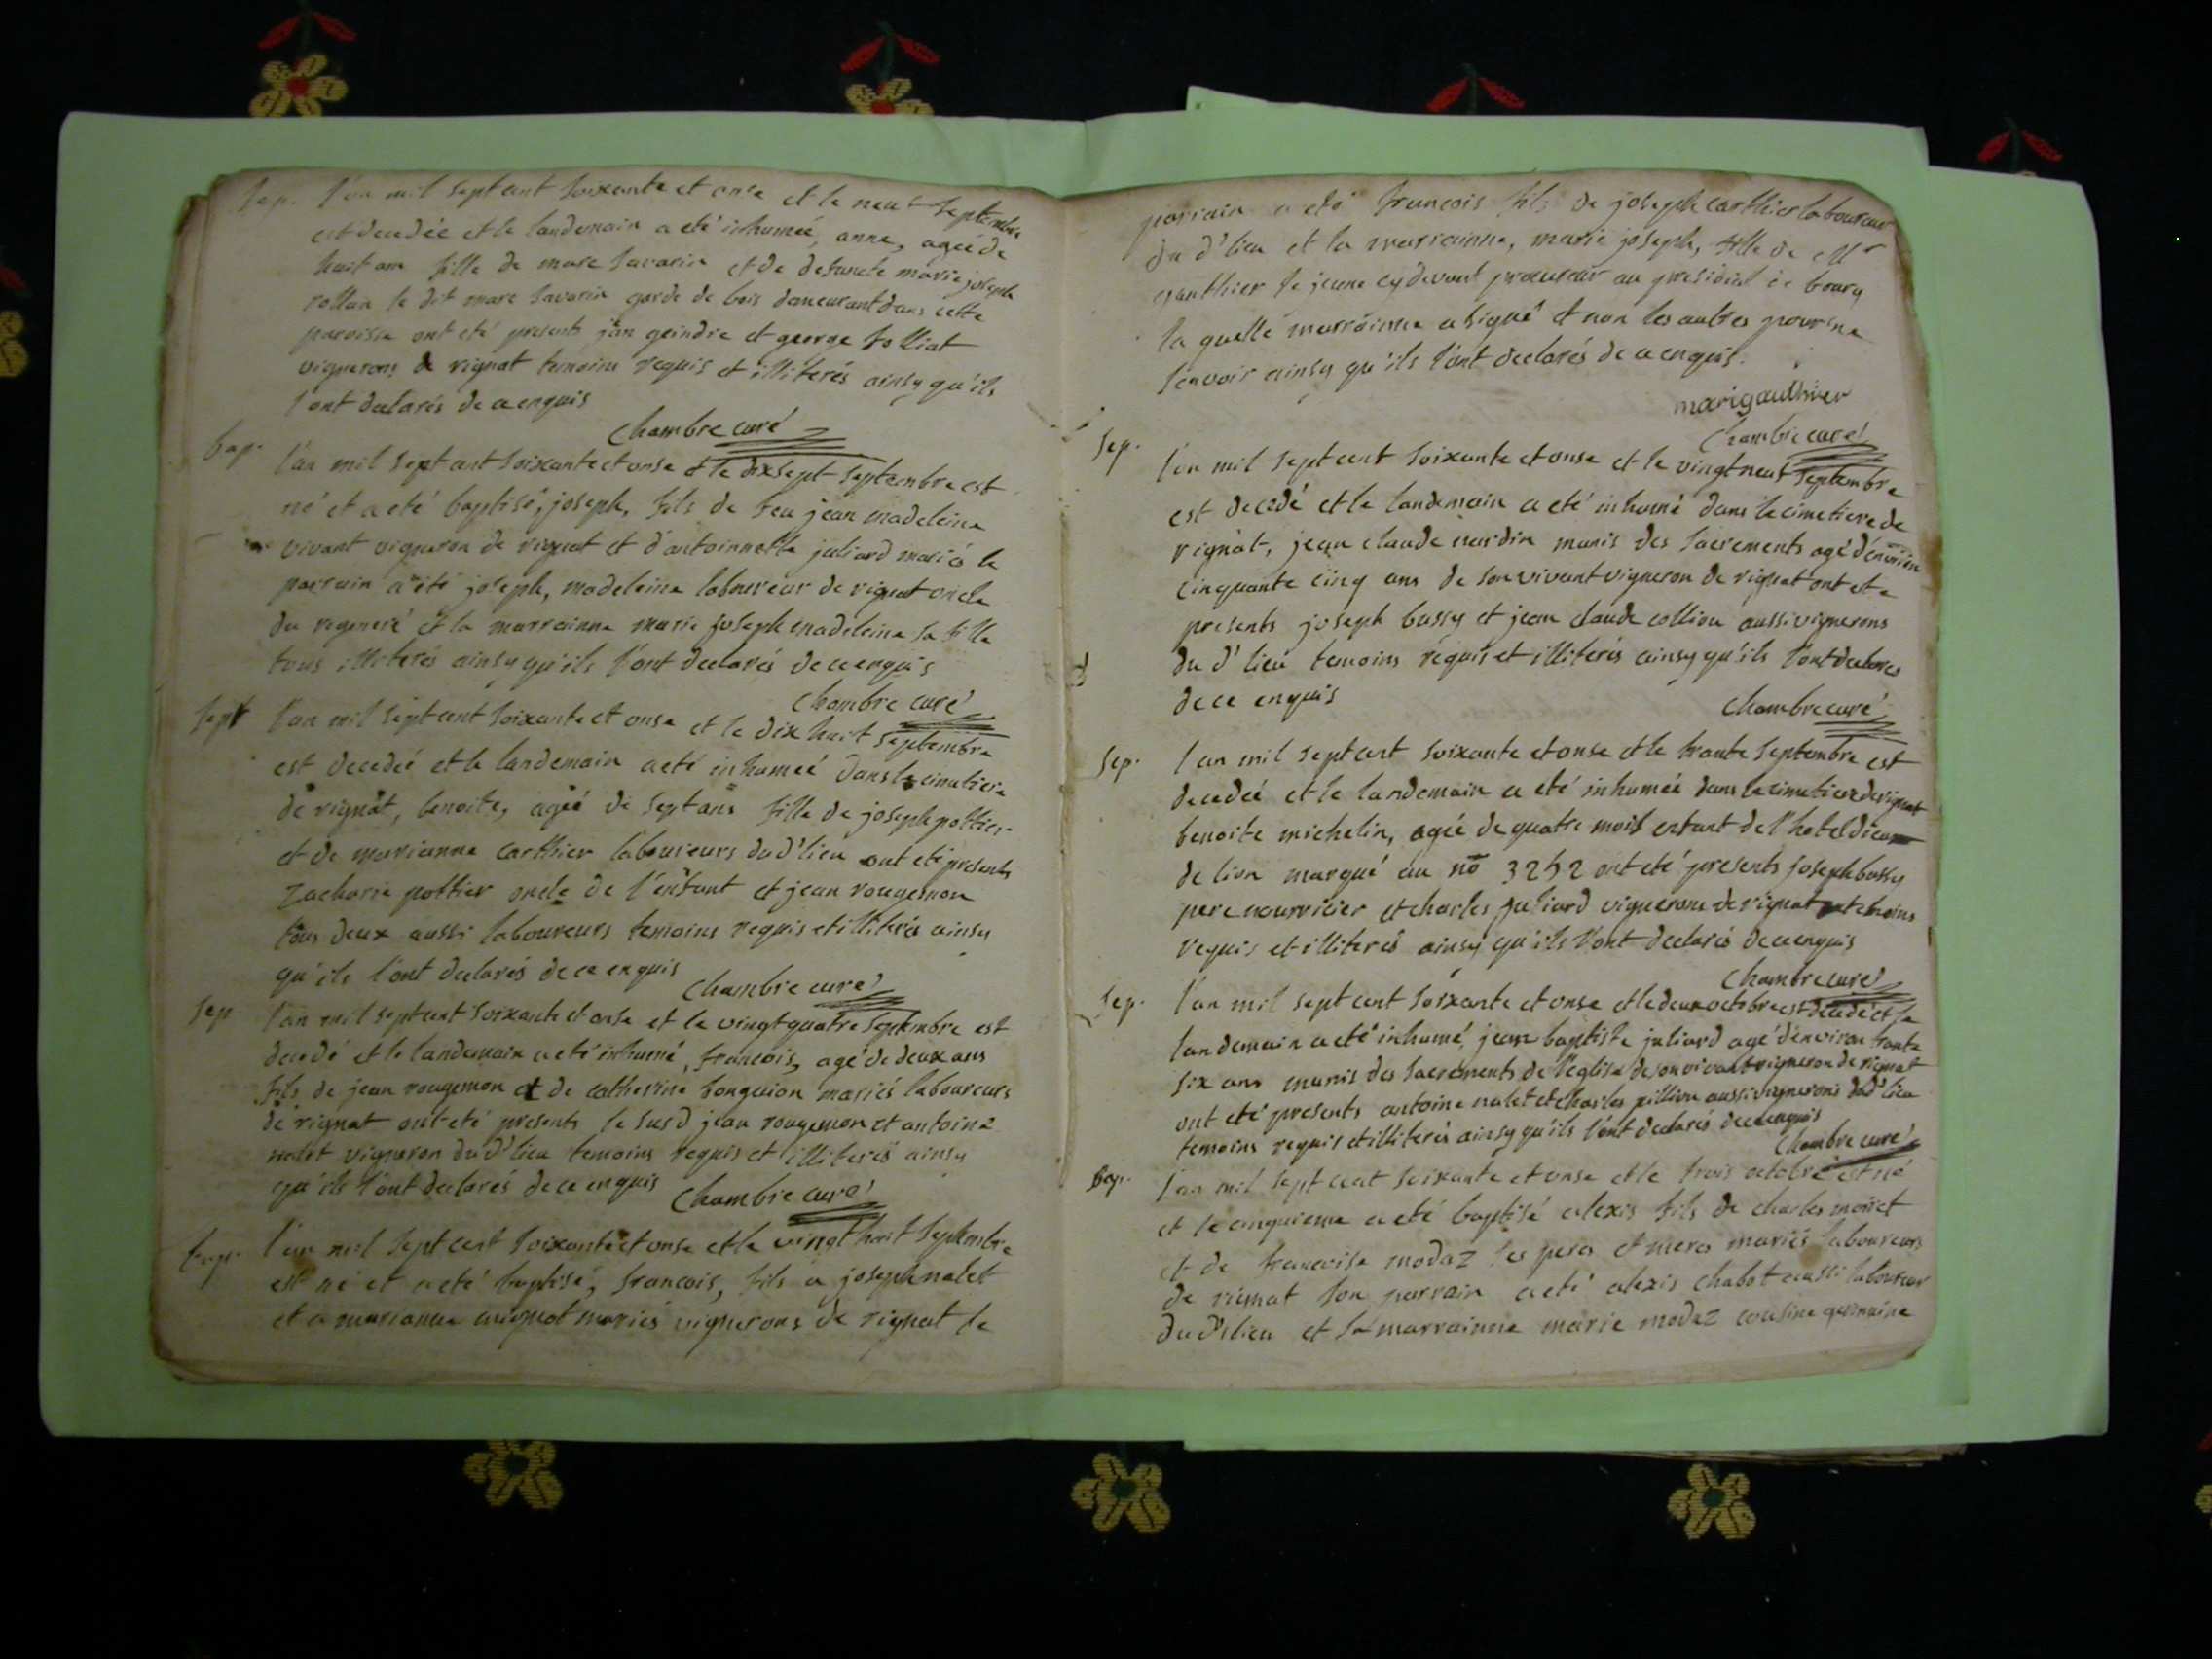 Sep. l'an mil sept cent soixante et onse et le neuf septembre
est decedée et le landemain a eté inhumée, anne, ageé de
huit ans fille de marc savarin et de defuncte marie joseph
rollan le dit marc savarin garde de bois demeurant dans cette
paroisse ont eté presents jan geindre et george folliat
vignerons de rignat temoins requis et illiterés ainsy qu'ils
l'ont declarés de ce enquis
Chambre curé
bap. l'an mil sept cent soixante et onse et le dix sept septembre est
né et a eté baptisé, joseph, fils de feu jean madeleine
vivant vigneron de rignat et d'antoinnette juliard mariés le
parrain a eté joseph, madeleine laboureur de rignat oncle
du regeneré et la marrainne marie joseph madeleine sa fille
tous illiterés ainsy qu'ils l'ont declarés de ce enquis
Chambre curé
Sept l'an mil sept cent soixante et onse et le dix huit septembre
est decedeé et le landemain a eté inhumeé dans le cimetiere
de rignat, benoite, ageé de sept ans fille de joseph pottier
et de marianne carthier laboureurs dud' lieu ont eté presents
Zacharie pottier oncle de l'enfant et jean rougemon
tous deux aussi laboureurs temoins requis et illiterés ainsy
qu'ils l'ont declarés de ce enquis
Chambre curé
Sep l'an mil sept cent soixante et onse et le vingt quatre septembre est
decedé et le landemain a eté inhumé, francois, agé de deux ans
fils de jean rougemon et de catherine songuion mariés laboureurs
de rignat ont eté presents le susd jean rougemon et antoine
nalet vigneron dud' lieu temoins requis et illiterés ainsy
qu'ils l'ont declarés de ce enquis
Chambre curé
bap. l'an mil sept cent soixante et onse et le vingt huit septembre
est né et a eté baptisé, francois, fils a joseph nalet
et a marianne mariés vignerons de rignat le
parrain a eté francois fils de joseph carthier laboureur
du d' lieu et la marrainne, marie joseph, fille de Mr
gauthier le jeune cy devant procureur au presidial de bourg
la quelle marrainne a signé et non les autres pour ne
scavoir ainsy qu'ils l'ont declarés de ce enquis.
marigauthier
Chambre curé
Sep. l'an mil sept cent soixante et onse et le vingt neuf septembre
est decedé et le landemain a eté inhumé dans le cimetiere de
rignat, jean claude nardin munis des sacrements agé d'environ
cinquante cinq ans de son vivant vigneron de rignat ont ete
presents joseph bussy et jean claude collion aussi vignerons
du d' lieu temoins requis et illiterés ainsy qu'ils l'ont declarés
de ce enquis
Chambre curé
Sep. l'an mil sept cent soixante et onse et le trante septembre est
decedeé et le landemain a eté inhumeé dans le cimetiere de rignat
benoite michelin, ageé de quatre mois enfant de l'hotel dieu
de lion marqué au no 3252 ont eté presents joseph bussy
pere nourricier et charles juliard vignerons de rignat temoins
requis et illiterés ainsy qu'ils l'ont declarés de ce enquis
Chambre curé
Sep. l'an mil sept cent soixante et onse et le deux octobre est decedé et le
landemain a eté inhumé, jean baptiste juliard agé d'environ trante
six ans munis des sacrements de l'eglise de son vivant vigneron de rignat
ont eté presents antoine nalet et charles pillion aussi vignerons dud' lieu
temoins requis et illiterés ainsy qu'ils l'ont declarés de ce enquis
Chambre curé
Bap. l'an mil sept cent soixante et onse et le trois octobre est né
et le cinquieme a eté baptisé alexis fils de charles moiret
et de francoise modaz ses peres et meres mariés laboureurs
de rignat son parrain a eté alexis chabot aussi laboureur
du d' lieu et la marrainne marie modaz cousine germaine